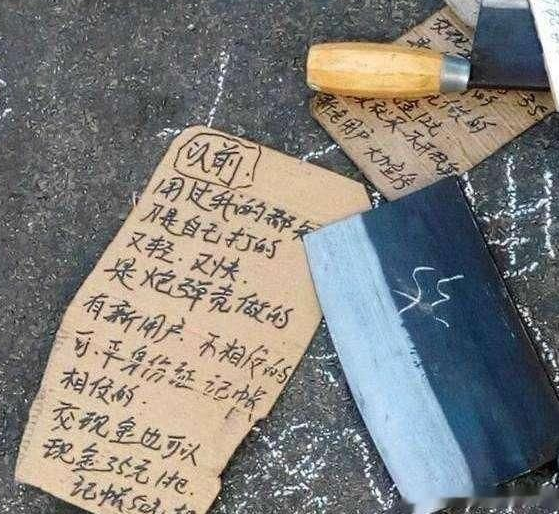 交现
是
35
做的
用户 大力宣传
以前.
用过我的都
刀是自己打的
又轻.又快.
是炮弹壳做的
有新用户.不相伩的
可.平身份证 记帐
相伩的.
交现金也可以
现金35元1把.
记帐50
55